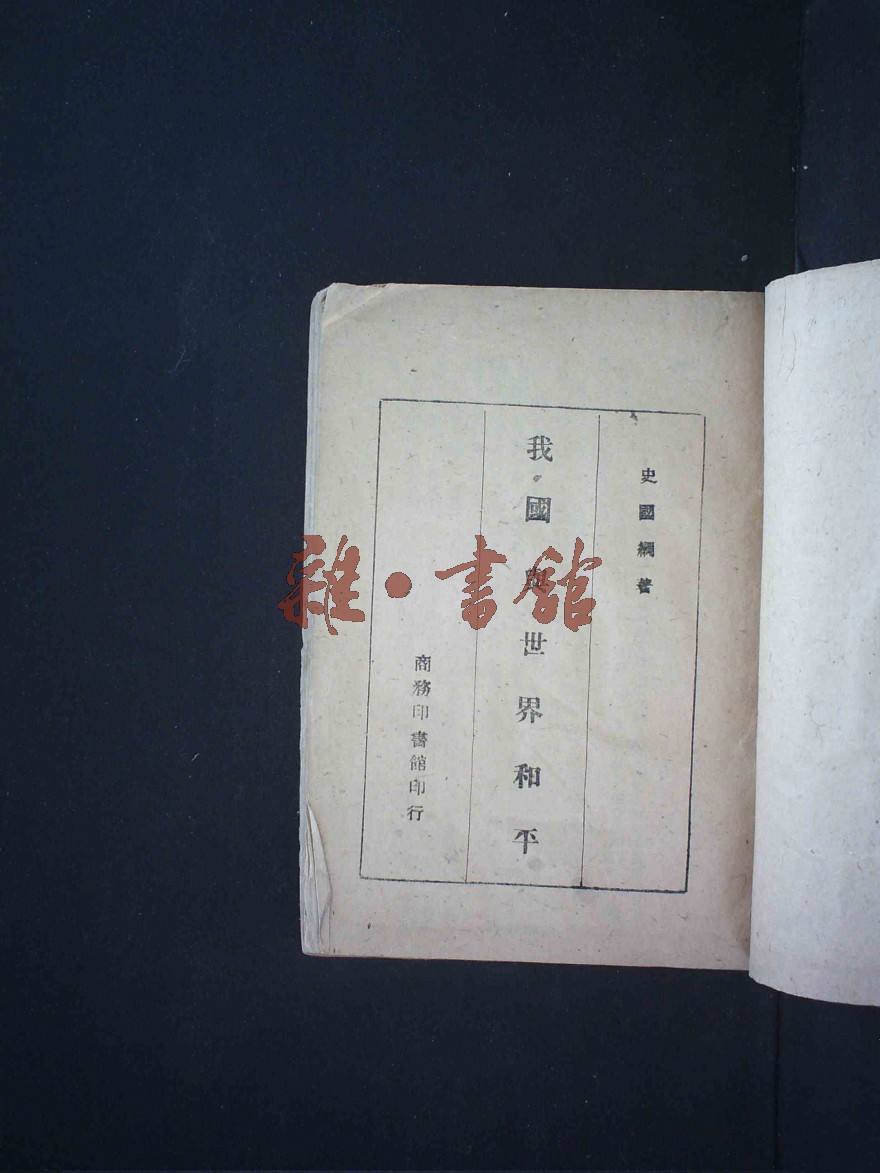 史國綱著
我國與世界和平
商務印書館印行
雜·書館